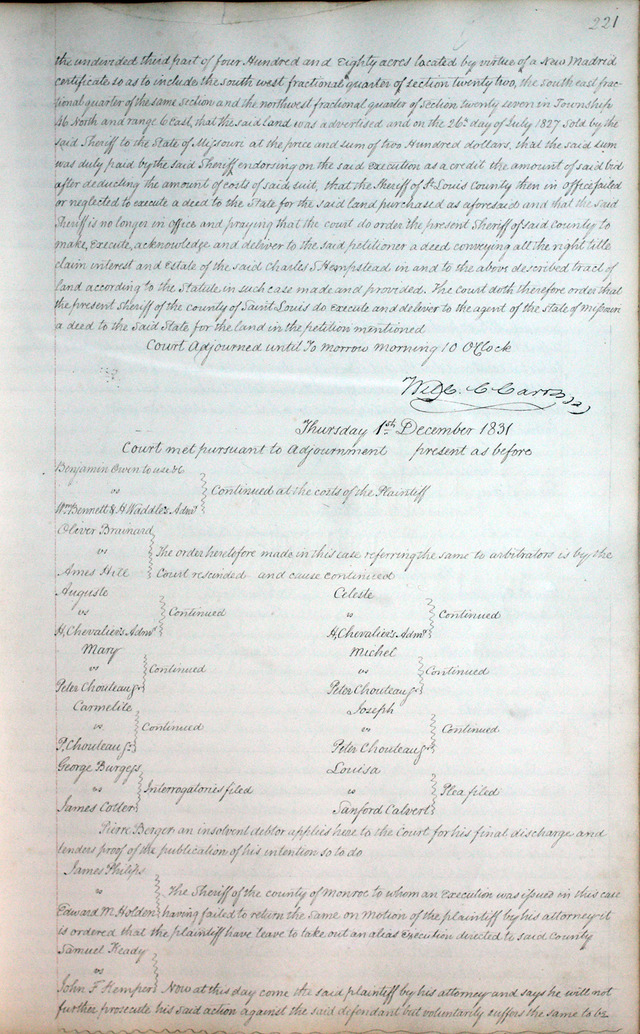 221
the undivided third part of four Hundred and Eighty acres located by virtue of a New Madrid
certificate so as to include the south west fractional quarter of section twenty two, the South east frac-
tional quarter of the same Section and the northwest fractional quarter of Section twenty seven in Township
46 North and range 6 east, that the said land was advertised and on the 26th day of July 1827 Sold by the
said Sheriff to the State of Missouri at the price and sum of two Hundred dollars, that the said sum
was duly paid by the said Sheriff endorsing on the said Execution as a credit the amount of said bid
after deducting the amount of costs of said suit, that the Sheriff of St Louis County then in office failed
or neglected to execute a deed to the State for the said land purchased as aforesaid and that the said
Sheriff is no longer in office and praying that the court do order the present Sheriff of said county to
make, Execute, acknowledge and deliver to the said petitioner a deed conveying all the right title
claim interest and Estate of the said Charles S Hempstead in and to the above described tract of
land according to the Statute in such case made and provided. The Court doth therefore order that
the present Sheriff of the County of Saint Louis do Execute and deliver to the agent of the State of Missouri
a deed to the said State for the land in the petition mentioned
Court Adjourned until To Morrow morning 10 O'Clock
Wm C Carr
Thursday 1st December 1831
Court met pursuant to Adjournment present as before
Benjamin Owen to use &c
vs
Continued at the costs of the Plaintiff
Wm Bennett & H Waddle's Admr
Oliver Brainard
vs
The order heretofore made in this case referring the same to arbitrators is by the
Ames Hill Court rescinded and cause continued
Auguste
vs Continued
H. Chevalier's Admr
Celeste
vs Continued
H. Chevalier's Admr
Mary
vs Continued
Peter Chouteau Jr
Michel
vs Continued
Peter Chouteau Jr
Carmelite
vs Continued
P. Chouteau Jr
Joseph
vs Continued
Peter Chouteau Jr
George Burgess
vs Interrogatories filed
James Cotter
Louisa
vs Plea filed
Sanford Calvert
Pierre Berger an insolvent debtor applies here to the Court for his final discharge and
tenders proof of the publication of his intention so to do
James Philips
vs The Sheriff of the county of Monroe to whom an Execution was issued in this case
Edward M. Holden having failed to return the same on motion of the plaintiff by his attorney it
is ordered that the plaintiff have leave to take out an alias Execution directed to said County
Samuel Keady
vs
John F Hemper Now at this day come the said plaintiff by his attorney and says he will not
further prosecute his said action against the said defendant but voluntarily suffers the same to be